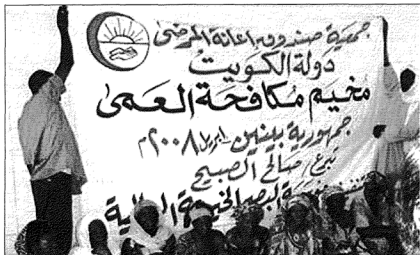 جمعية صندوق اعانة المرضى
دولة الكويت
مخيم مكافحة العمى
جمهورية بينين ابريل ٢٠٠٨م
تبرع/ صالح الصبيح
البصر الخيرية العالمية